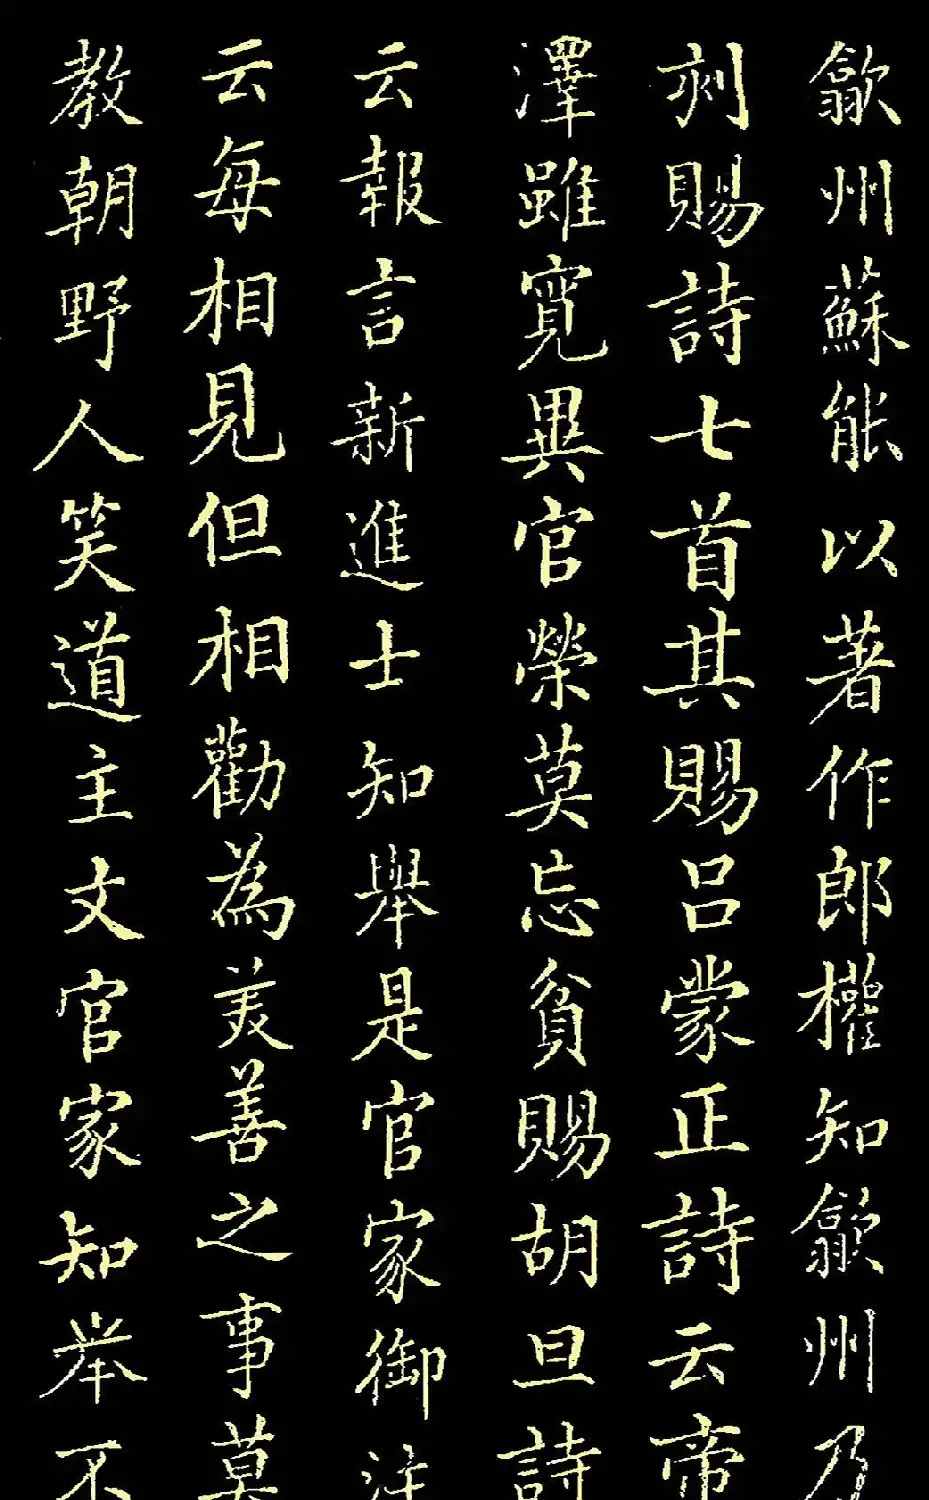 歙州蘇能以著作郎權知歙州乃
刾賜詩七首其賜呂蒙正詩云帝
澤雖寬異官榮莫忘貧賜胡旦詩
云報言新進士知舉是官家御注
云每相見但相勸為美善之事莫
教朝野人笑道主文官家知举不